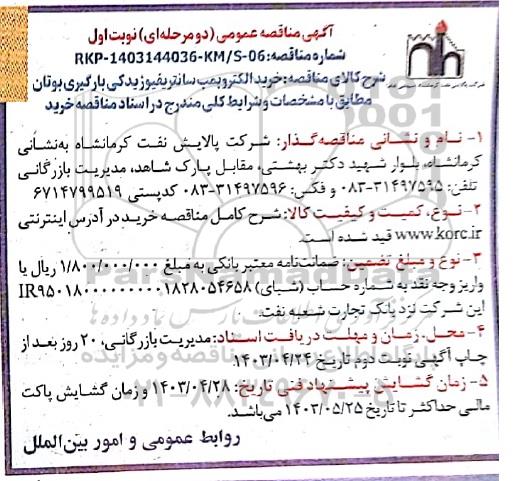 آگهی مناقصه عمومی (دو مرحله‌ای) نوبت اول
شماره مناقصه: RKP-1403144036-KM/S-06
شرح کالای مناقصه: خرید الکتروپمپ سانتریفیوژ یدکی بارگیری بوتان
مطابق با مشخصات و شرایط کلی مندرج در اسناد مناقصه خرید
۱- نام و نشانی مناقصه‌گذار: شرکت پالایش نفت کرمانشاه به‌نشانی
کرمانشاه، بلوار شهید دکتر بهشتی، مقابل پارک شاهد، مدیریت بازرگانی
تلفن: ۳۱۴۹۷۵۹۵-۰۸۳ و فکس: ۳۱۴۹۷۵۹۶-۰۸۳ کدپستی ۶۷۱۴۷۹۹۵۱۹
۲- نوع، کمیت و کیفیت کالا: شرح کامل مناقصه خرید در آدرس اینترنتی
www.korc.ir قید شده است.
۳- نوع و مبلغ تضمین: ضمانت‌نامه معتبر بانکی به مبلغ ۱/۸۰۰/۰۰۰/۰۰۰ ریال یا
واریز وجه نقد به شماره حساب (شبای) IR۹۵۰۱۸۰۰۰۰۰۰۰۰۰۰۱۸۲۸۰۵۴۶۵۸
این شرکت نزد بانک تجارت شعبه نفت.
۴- محل، زمان و مهلت دریافت اسناد: مدیریت بازرگانی، ۲۰ روز بعد از
چاپ آگهی نوبت دوم تاریخ ۱۴۰۳/۰۴/۲۴.
۵- زمان گشایش پیشنهاد فنی تاریخ: ۱۴۰۳/۰۴/۲۸ و زمان گشایش پاکت
مالی حداکثر تا تاریخ ۱۴۰۳/۰۵/۲۵ می‌باشد.
روابط عمومی و امور بین‌الملل